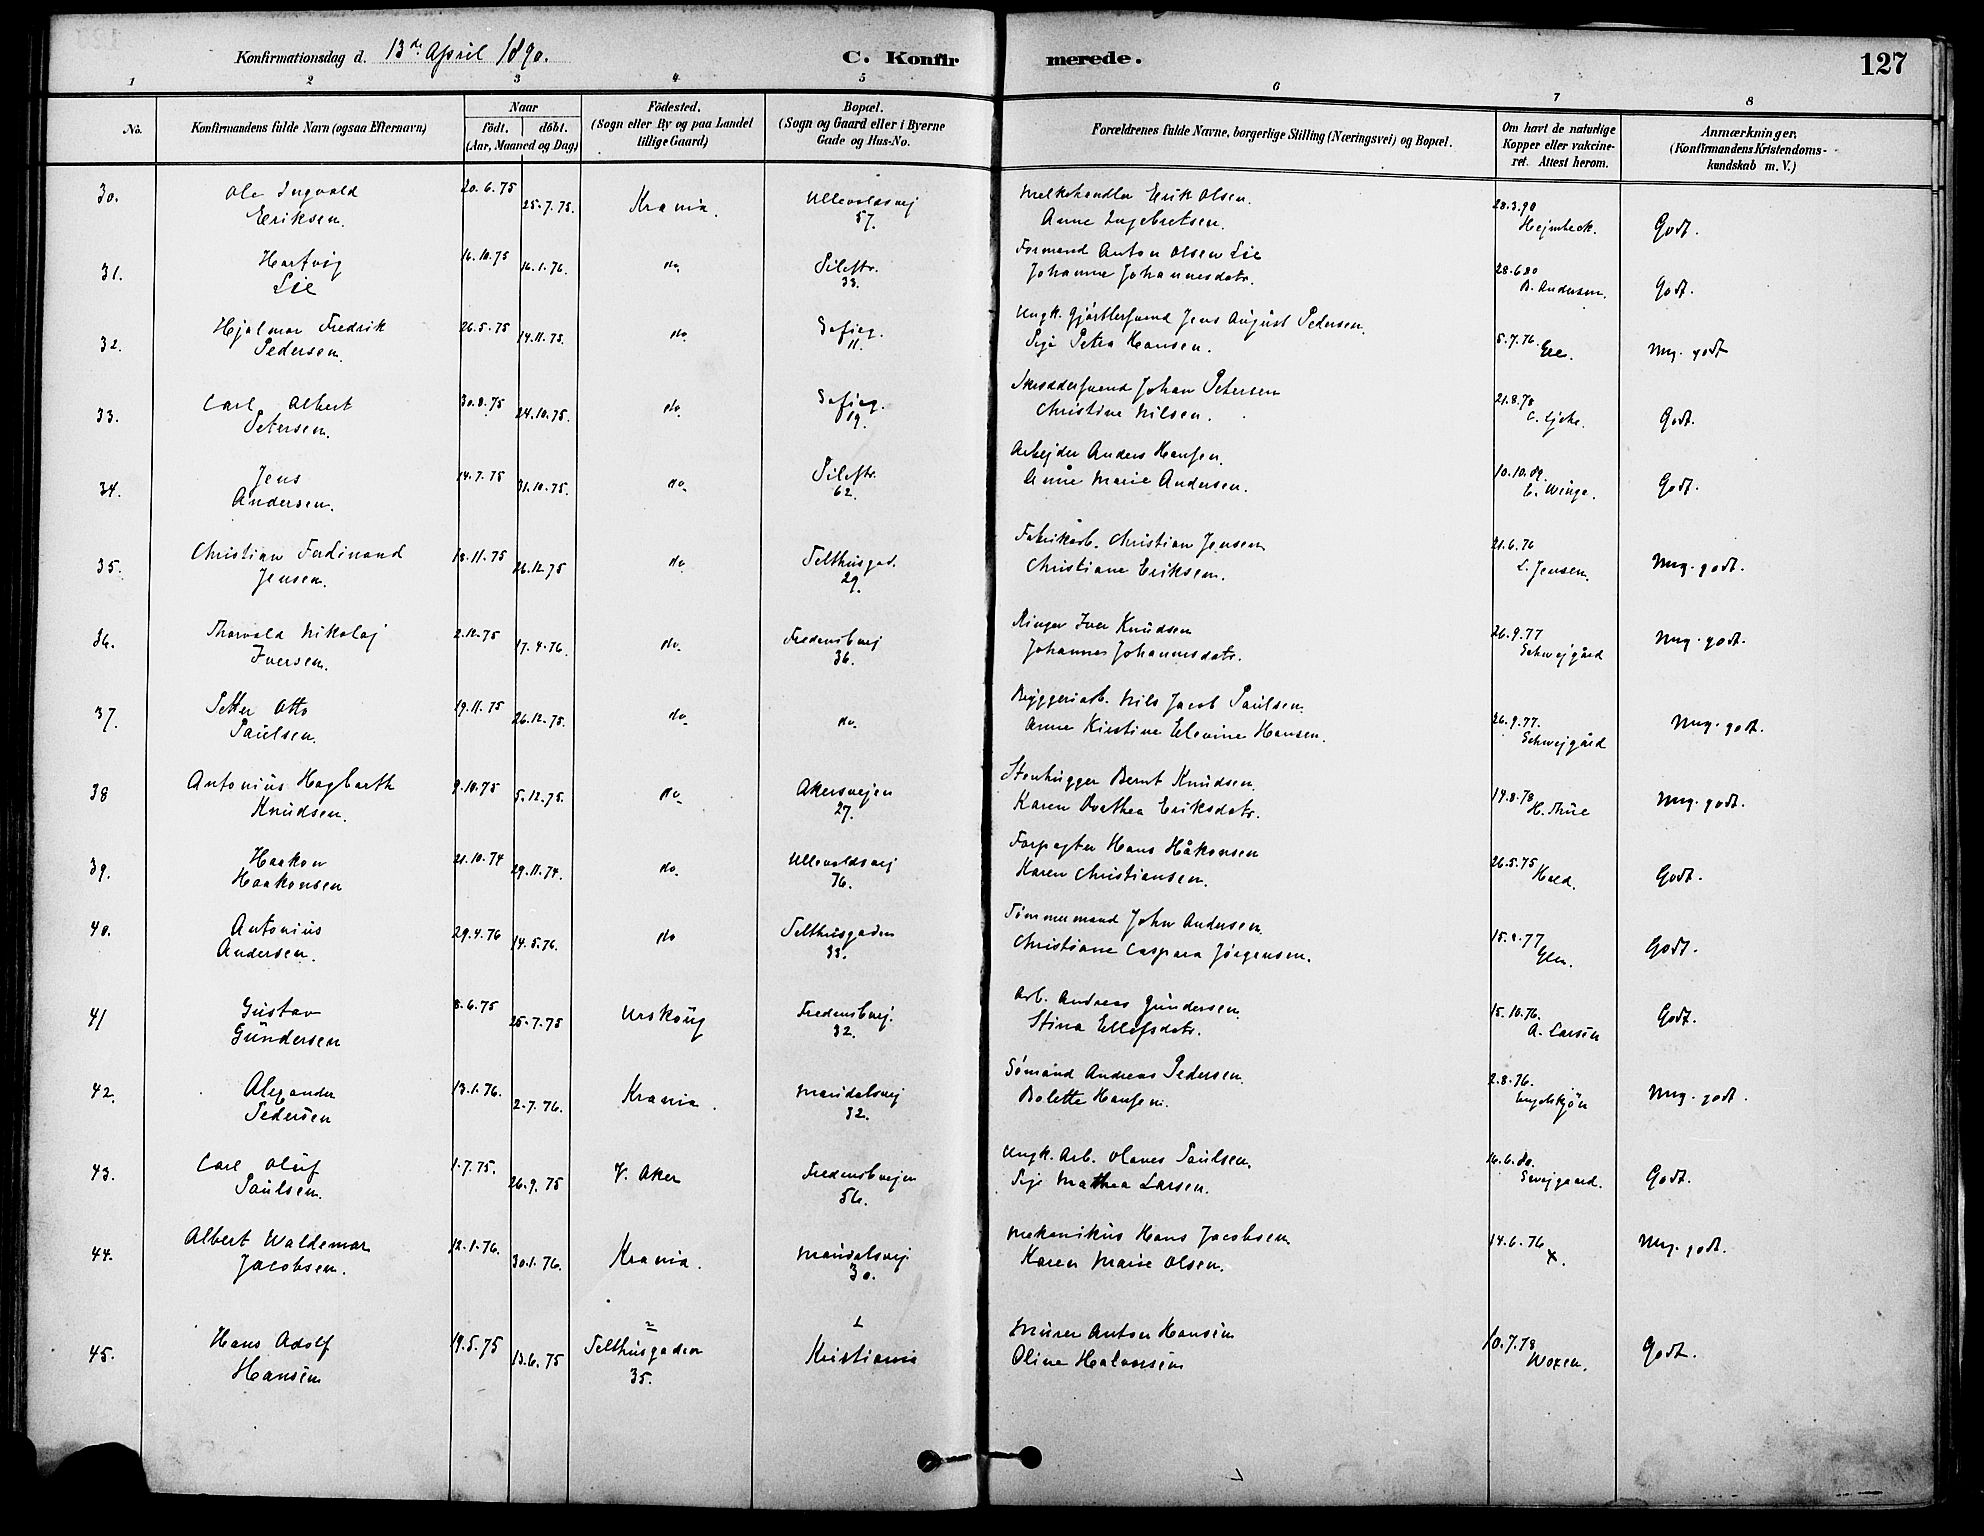 Konfirmationsdag d. 13de April 1890. C. Konfirmerede. 127
1 2 3 4 5 6 7 8
No. Konfirmandens fulde Navn (ogsaa Efternavn) Naar födt, döbt. (Aar, Maaned og Dag) Födested. (Sogn eller By og paa Landet tillige Gaard) Bopæl. (Sogn og Gaard eller i Byerne Gade og Hus-No. Forældrenes fulde Navne, borgerlige Stilling (Næringsvei) og Bopæl. Om havt de naturlige Kopper eller vakcineret. Attest herom. Anmærkninger, (Konfirmandens Kristendomskundskab m. V.)
30. Ole Ingvald 20.6.75 25.7.75. Krania. Ullevoldsvej Melkehandler Erik Olsen. 28.3.90
Eriksen. 57. Anne Ingebretsen. Hejmbeck. Godt.
31. Hartvig 16.10.75 16.1.76. do. Pilestr. Formand Anton Olsen Lie 28.6.80
Lie 33. Johanne Johannesdatr. B. Andersen. Godt.
32. Hjalmar Fredrik 26.5.75 14.11.75. do. Sofieg. Ungk. Gjørtlersvend Jens August Pedersen.
Pedersen. 11. Pige Petra Hansen. 5.7.76. Mg. godt
33. Carl Albert 30.8.75 24.10.75. do. Sofieg. Skrædersvend Johan Petersen 21.8.78
Petersen. 19. Christine Nilsen. Godt.
34. Jens 14.7.75 31.10.75. do. Pilestr. Arbejder Anders Hansen. 10.10.89.
Andersen. 62. Anne Marie Andersen. E. Winge. Godt.
35. Christian Ferdinand 18.11.75 26.12.75 do. Telthusgad. Fabrikarb. Christian Jensen 21.6.76
Jensen. 29. Christiane Eriksen. L. Jensen. Mg. godt.
36. Thorvald Nikolaj 2.12.75 17.4.76. do. Fredensbvej Ringer Iver Knudsen 26.9.77
Iversen. 36. Johannes Johannesdatr. Schwejgård Mg. godt.
37. Petter Otto 19.11.75 26.12.75. do. do. Bryggeriarb. Nils Jacob Paulsen. 26.9.77.
Paulsen. Anne Kirstine Elevine Hansen. Schwejgård Mg. godt.
38 Antonius Hagbarth 9.10.75 5.12.75. do. Akersvejen Stenhugger Bernt Knudsen. 14.8.78
Knudsen. 27. Karen Dorthea Eriksdatr. H. Thue Mg. godt.
39. Haakon 21.10.74 29.11.74. do. Ullevoldsvej Forpagter Hans Håkonsen 26.5.75
Haakonsen 76. Karen Christiansen. Hald. Godt.
40. Antonius 29.4.76 14.5.76. do Telthusgaden Tømmermand John Andersen. 77
Andersen. 33. Christiane Caspara Jörgensen. Godt.
41 Gustav 8.6.75 25.7.75 Urskoug Fredensbvej. Arb. Andreas Gundersen. 15.10.76.
Gundersen 32. Stina Ellefsdatr. A. Larsen Godt.
42. Alexander 13.1.76. 2.7.76. Krania. Maridalsvej Sømand Andreas Pedersen. 2.8.76.
Pedersen 32. Bolette Hansen. Engelskjön Mg. godt.
43. Carl Oluf 1.7.75. 26.9.75 V. Aker Fredensbvejen Ungk. Arb. Olaves Paulsen. 16.6.80.
Paulsen. 56. Pige Mathea Larsen. Svejgaard. Godt.
44. Albert Waldemar 12.1.76. 30.1.76. Krania. Maridalsvej. Mekanikus Hans Jacobsen 14.6.76
Jacobsen. 30. Karen Marie Olsen. x. Mg. godt.
2 1
45. Hans Adolf 19.5.75 13.6.75 Telthusgaden Kristiania Murer Anton Hansen 10.7.78
Hansen 35. Oline Halvorsen Woxen. Godt.